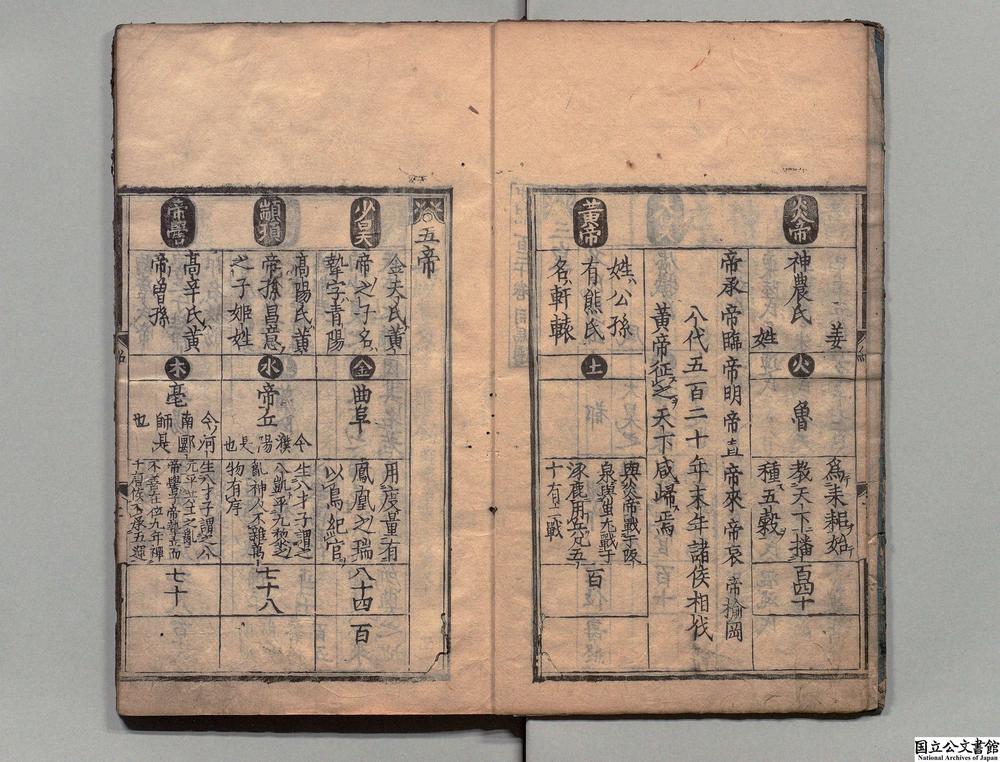 炎帝
神農氏
姜
姓
火
魯
爲耒耜始
教天下播
種五穀
百四十
帝承 帝臨帝明帝直帝來帝哀 帝揄岡
八代五百二十年末年諸侯相伐
黄帝征之天下咸歸焉
黄帝
姓公孫
有熊氏
名軒轅
土
與炎帝戰于阪
泉與蚩尤戰于
涿鹿用兵凢五
十有二戰
百
五帝
少昊
金天氏黄
帝之子名
摯字青陽
金
曲阜
用度量有
鳳凰之瑞
以鳥紀官
八十四
百
顓頊
高陽氏黄
帝孫昌意
之子姬姓
水
帝丘
今
濮
陽
是
也
生八才子謂之
八凱平九黎之
亂神人不雜萬
物有序
七十八
帝嚳
高辛氏黄
帝曽孫
木
亳
今河
南郾
師是
也
生八才子謂之八
元平共工之亂
帝嚳子帝摯立而
不善在位九年禪
七十
国立公文書館
National Archives of Japan